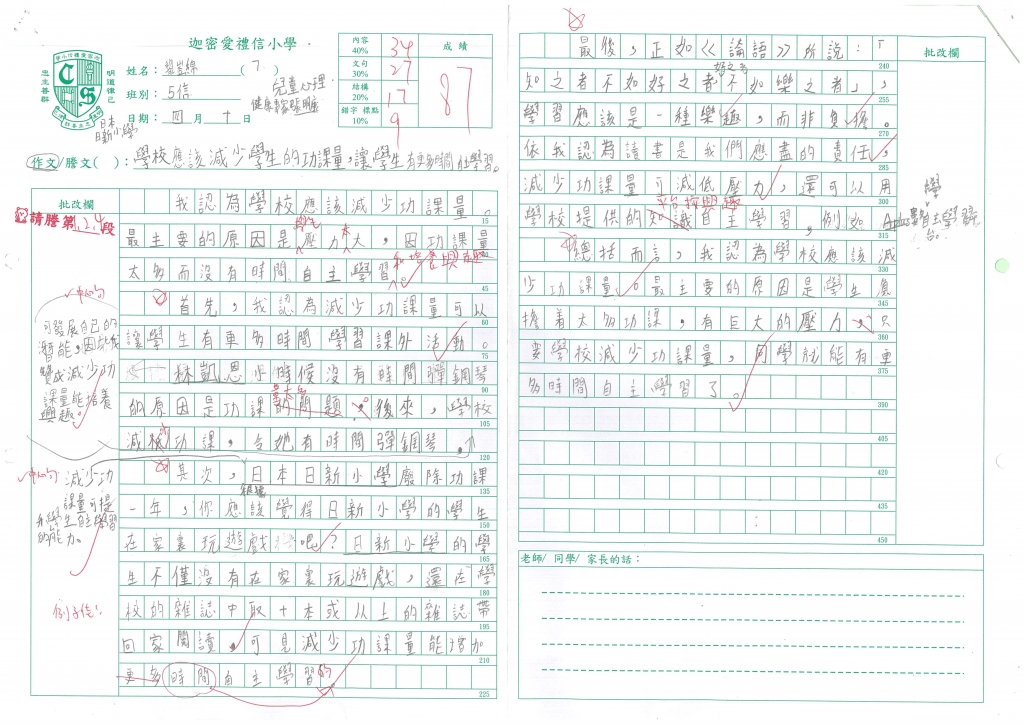 迦密愛禮信小學
明道律己
忠主善群
姓名：
( 7 )
班別： 5信
日期： 四 月 十 日
兒童心理
健康
日本
日新小學
內容 40% 34
文句 30% 27
結構 20% 17
錯字 標點 10% 9
成績
87
作文/謄文( )： 學校應該減少學生的功課量，讓學生有更多時間自主學習。
批改欄
請謄第1,2,4段
我認為學校應該減少功課量。
15
最主要的原因是壓力大，因功課量
太多而沒有時間自主學習
和培養興趣
45
首先，我認為減少功課量可以
60
讓學生有更多時間學習課外活動。
75
林凱恩小時候沒有時間彈鋼琴
90
的原因是功課的問題。後來，學校
105
減校功課，令她有時間彈鋼琴。
120
中心句
可發展自己的
潛能，因此我
贊成減少功
課量能培養
興趣。
其次，日本日新小學廢除功課
135
一年，你應該覺得日新小學的學生
150
在家裏玩遊戲吧？日新小學的學
165
生不僅沒有在家裏玩遊戲，還在學
180
校的雜誌中取十本或以上的雜誌帶
195
回家閱讀，可見減少功課量能增加
210
更多時間自主學習的
225
中心句
減少功
課量可提
升學生自主學習
的能力。
例子佳！
最後，正如《論語》所說：「
240
知之者不如好之者不如樂之者」，
好之者
255
學習應該是一種樂趣，而非負擔。
270
依我認為讀書是我們應盡的責任，
285
減少功課量可減低壓力，還可以用
300
平台按興趣
學校提供的知識自主學習，例如
315
自主學習
台。
總括而言，我認為學校應該減
330
少功課量。最主要的原因是學生負
345
擔着太多功課，有巨大的壓力，只
360
要學校減少功課量，同學就能有更
375
多時間自主學習了。
390
405
420
435
450
批改欄
老師/ 同學/ 家長的話：